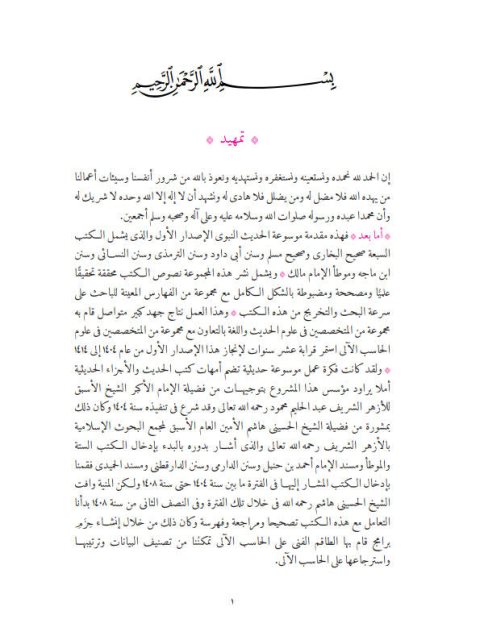 بسم الله الرحمن الرحيم
* تمهيد *
إن الحمد لله نحمده ونستعينه ونستغفره ونستهديه ونعوذ بالله من شرور أنفسنا وسيئات أعمالنا
من يهده الله فلا مضل له ومن يضلل فلا هادى له ونشهد أن لا إله إلا الله وحده لا شريك له
وأن محمدا عبده ورسوله صلوات الله وسلامه عليه وعلى آله وصحبه وسلم أجمعين.
* أما بعد * فهذه مقدمة موسوعة الحديث النبوى الإصدار الأول والذى يشمل الكتب
السبعة صحيح البخارى وصحيح مسلم وسنن أبى داود وسنن الترمذى وسنن النسائى وسنن
ابن ماجه وموطأ الإمام مالك * ويشمل نشر هذه المجموعة نصوص الكتب محققة تحقيقًا
علميًا ومصححة ومضبوطة بالشكل الكامل مع مجموعة من الفهارس المعينة للباحث على
سرعة البحث والتخريج من هذه الكتب * وهذا العمل نتاج جهد كبير متواصل قام به
مجموعة من المتخصصين فى علوم الحديث واللغة بالتعاون مع مجموعة من المتخصصين فى علوم
الحاسب الآلى استمر قرابة عشر سنوات لإنجاز هذا الإصدار الأول من عام ١٤٠٤ إلى ١٤١٤
* ولقد كانت فكرة عمل موسوعة حديثية تضم أمهات كتب الحديث والأجزاء الحديثية
أملا يراود مؤسس هذا المشروع بتوجيهات من فضيلة الإمام الأكبر الشيخ الأسبق
للأزهر الشريف عبد الحليم محمود رحمه الله تعالى وقد شرع فى تنفيذه سنة ١٤٠٤ وكان ذلك
بمشورة من فضيلة الشيخ الحسينى هاشم الأمين العام الأسبق لمجمع البحوث الإسلامية
بالأزهر الشريف رحمه الله تعالى والذى أشار بدوره بالبدء بإدخال الكتب الستة
والموطأ ومسند الإمام أحمد بن حنبل وسنن الدارمى وسنن الدارقطنى ومسند الحميدى فقمنا
بإدخال الكتب المشار إليها فى الفترة ما بين سنة ١٤٠٤ حتى سنة ١٤٠٨ ولكن المنية وافت
الشيخ الحسينى هاشم رحمه الله فى خلال تلك الفترة وفى النصف الثانى من سنة ١٤٠٨ بدأنا
التعامل مع هذه الكتب تصحيحا ومراجعة وفهرسة وكان ذلك من خلال إنشاء حزم
برامج قام بها الطاقم الفنى على الحاسب الآلى تمكننا من تصنيف البيانات وترتيبها
واسترجاعها على الحاسب الآلى.
١